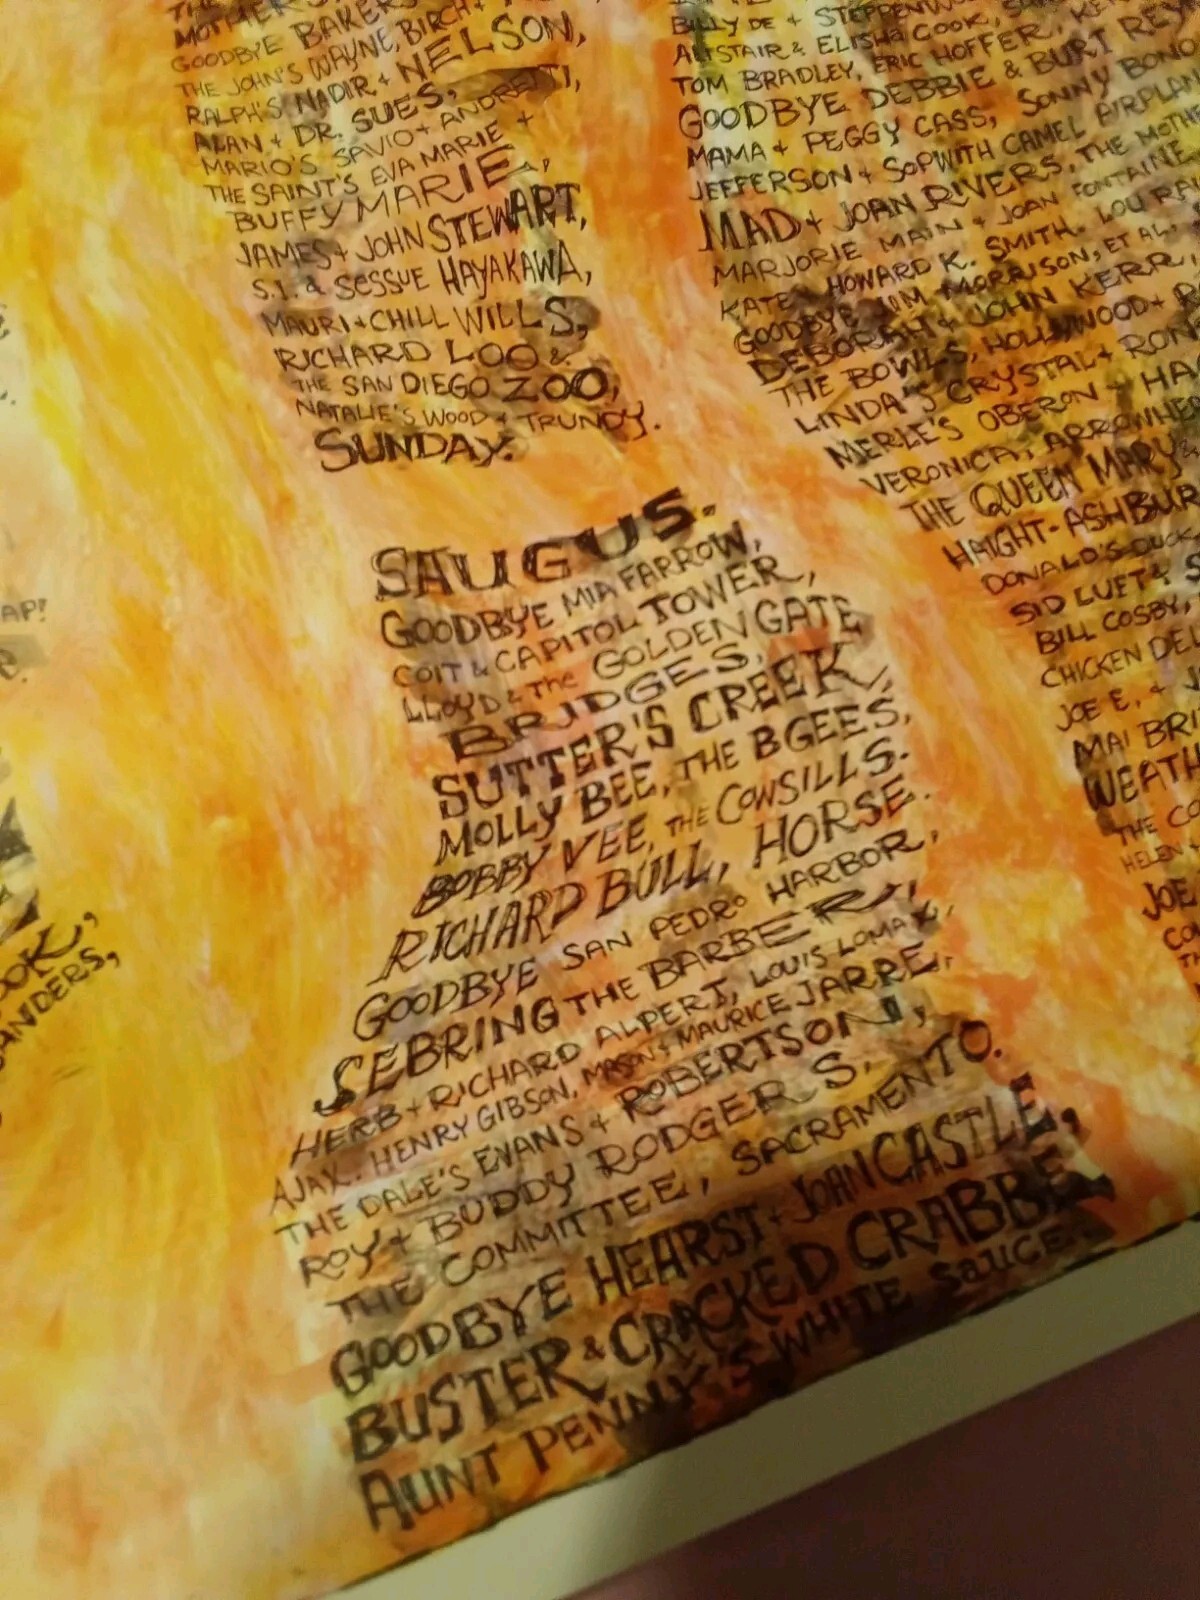 MOTHER'S
GOODBYE BAKERS
THE JOHN'S WAYNE, BIRCH +
RALPH'S NADIR + NELSON,
ALAN + DR. SUES,
MARIO'S SAVIO + ANDRETTI,
THE SAINT'S EVA MARIE +
BUFFY MARIE,
JAMES + JOHN STEWART,
S.I. & SESSUE HAYAKAWA,
MAURI + CHILL WILLS,
RICHARD LOO &
THE SAN DIEGO ZOO,
NATALIE'S WOOD + TRUNDY.
SUNDAY.
SAUGUS.
GOODBYE MIA FARROW,
COIT & CAPITOL TOWER,
LLOYD & THE GOLDEN GATE
BRIDGES,
SUTTER'S CREEK,
MOLLY BEE, THE B GEES,
BOBBY VEE, THE COWSILLS.
RICHARD BULL, HORSE.
GOODBYE SAN PEDRO HARBOR,
SEBRING THE BARBER,
HERB + RICHARD ALPERT, LOUIS LOMAX,
AJAX. HENRY GIBSON, MASON + MAURICE JARRE,
THE DALE'S EVANS & ROBERTSON,
ROY + BUDDY RODGER S.
THE COMMITTEE, SACRAMENTO.
GOODBYE HEARST + JOAN CASTLE,
BUSTER & CRACKED CRABBE,
AUNT PENNY'S WHITE SAUCE.
BILLY DE + STEPPENWOL
ALISTAIR & ELISHA COOK,
TOM BRADLEY, ERIC HOFFER,
GOODBYE DEBBIE & BURT REY
MAMA + PEGGY CASS, SONNY BONO
JEFFERSON + SOPWITH CAMEL AIRPLAN
MAD + JOAN RIVERS, THE MOTHE
MARJORIE MAIN + JOAN FONTAINE
KATE + HOWARD K. SMITH. LOU RA
GOODBYE JIM MORRISON, ET AL.
DEBORAH + JOHN KERR,
THE BOWLS, HOLLYWOOD + R
LINDA'S CRYSTAL + RON
MERLE'S OBERON + HA
VERONICA, ARROWHE
THE QUEEN MARY &
HAIGHT-ASHBUR
DONALD'S DUCK
SID LUFT & S
BILL COSBY,
CHICKEN DEL
JOE E. + J
MAI BRI
WEATH
THE CO
HELEN +
JOE
CO
TH
AP!
e.
OOK,
ANDERS,